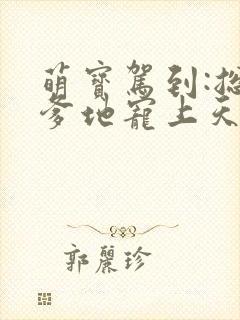 萌寶駕到:總
爹地寵上天
郭麗珍